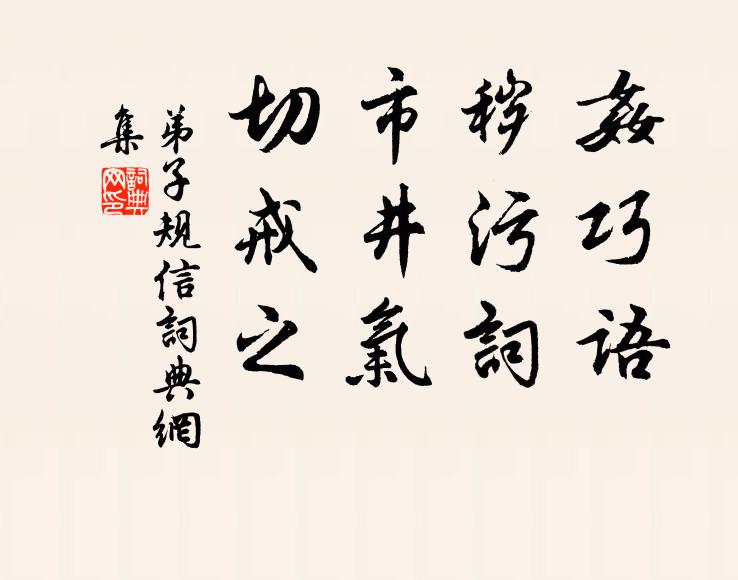 姦巧語
穢污詞
市井氣
切戒之
弟子規信詞典網
集
詞典
网印